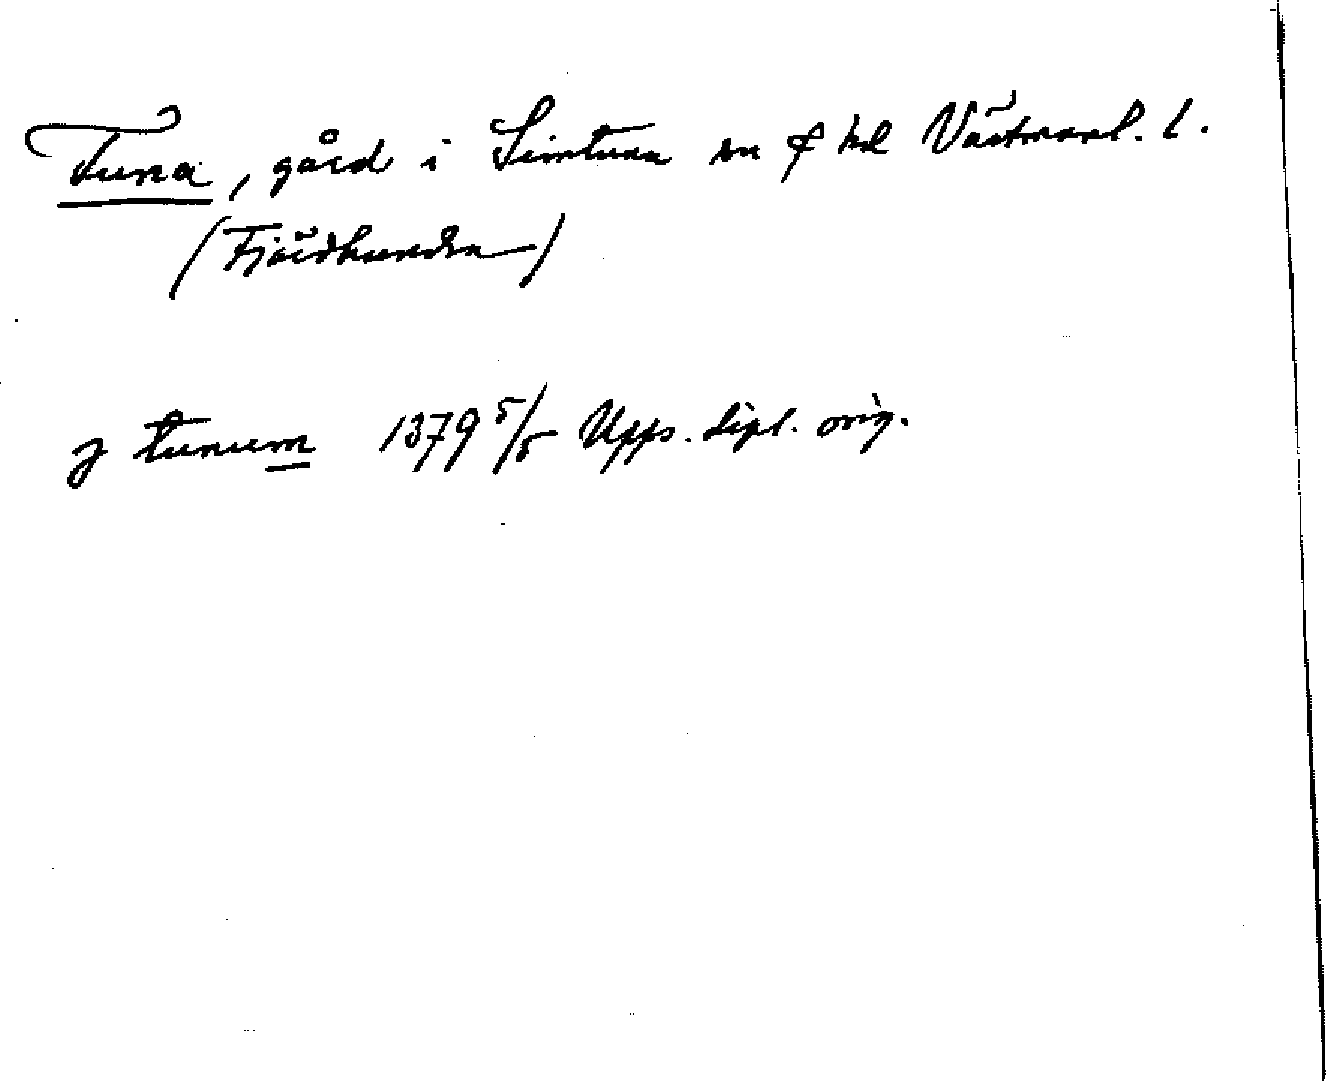 Tuna, gård i Simtuna sn ⨍ hd Västmanl. l.
(Fjärdhundra)
j tunum 1379 5/5 Upps. dipl. orig.